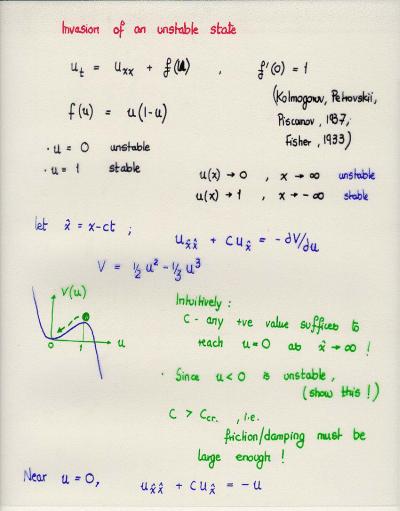 Invasion of an unstable state
u_t = u_xx + f(u) , f'(0) = 1
(Kolmogorov, Petrovskii,
f(u) = u(1-u)
Piscanov, 1937;
Fisher, 1933)
· u = 0 unstable
· u = 1 stable
u(x) → 0 , x → ∞ unstable
u(x) → 1 , x → -∞ stable
let x̂ = x-ct ;
u_x̂x̂ + cu_x̂ = -dV/du
V = ½u² - ⅓u³
V(u)
0
1
u
Intuitively :
c - any +ve value suffices to
reach u=0 as x̂ → ∞ !
· Since u < 0 is unstable,
(show this !)
c > c_cr. , i.e.
friction/damping must be
large enough !
Near u = 0, u_x̂x̂ + cu_x̂ = -u